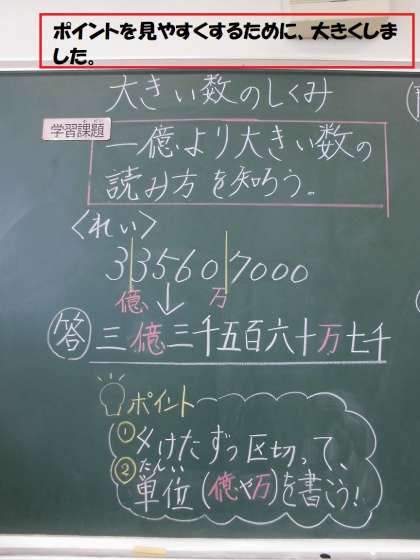 ポイントを見やすくするために、大きくしま
した。
大きい数のしくみ
学習課題
一億より大きい数の
読み方を知ろう。
〈れい〉
3 3560 7000
億 万
答 三億三千五百六十万七千
ポイント
① 4けたずつ区切って、
たんい
② 単位(億や万)を書こう!